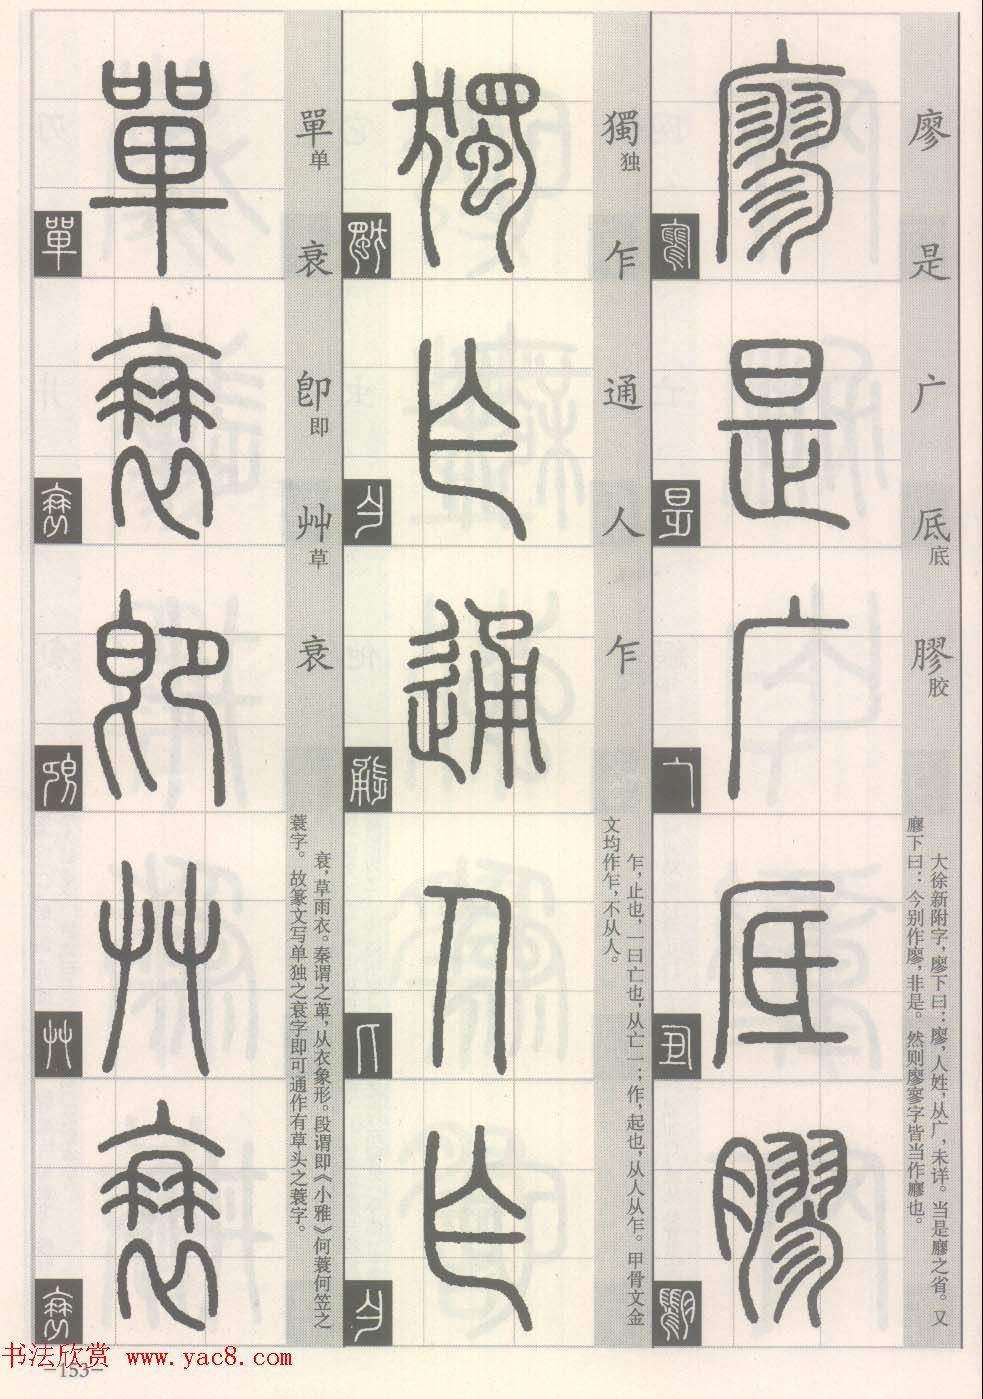 廖
是
广
底
底
膠
胶
大徐新附字，廖下曰：廖，人姓，从广，未详。当是廫之省。又
廫下曰：今别作廖，非是。然则廖寥字皆当作廫也。
獨
独
乍
通
人
乍
乍，止也，一曰亡也，从亡一；作，起也，从人从乍。甲骨文金
文均作乍，不从人。
單
单
衰
卽
即
艸
草
衰
衰，草雨衣。秦谓之萆，从衣象形。段谓即《小雅》何蓑何笠之
蓑字。故篆文写单独之衰字即可通作有草头之蓑字。
书法欣赏 www.yac8.com
—153—